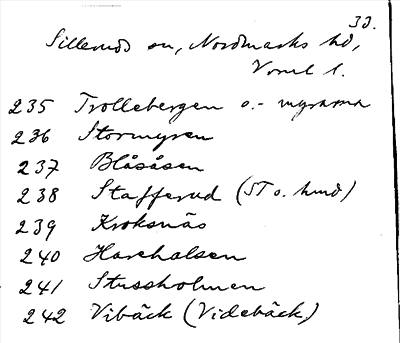 33.
Sillerud sn, Nordmarks hd,
Vrml l.
235 Trollebergen o.- myrarna
236 Stormyren
237 Blåsåsen
238 Stafferud (ST o. hmd)
239 Kroksnäs
240 Harehalsen
241 Strussholmen
242 Vibäck (Videbäck)